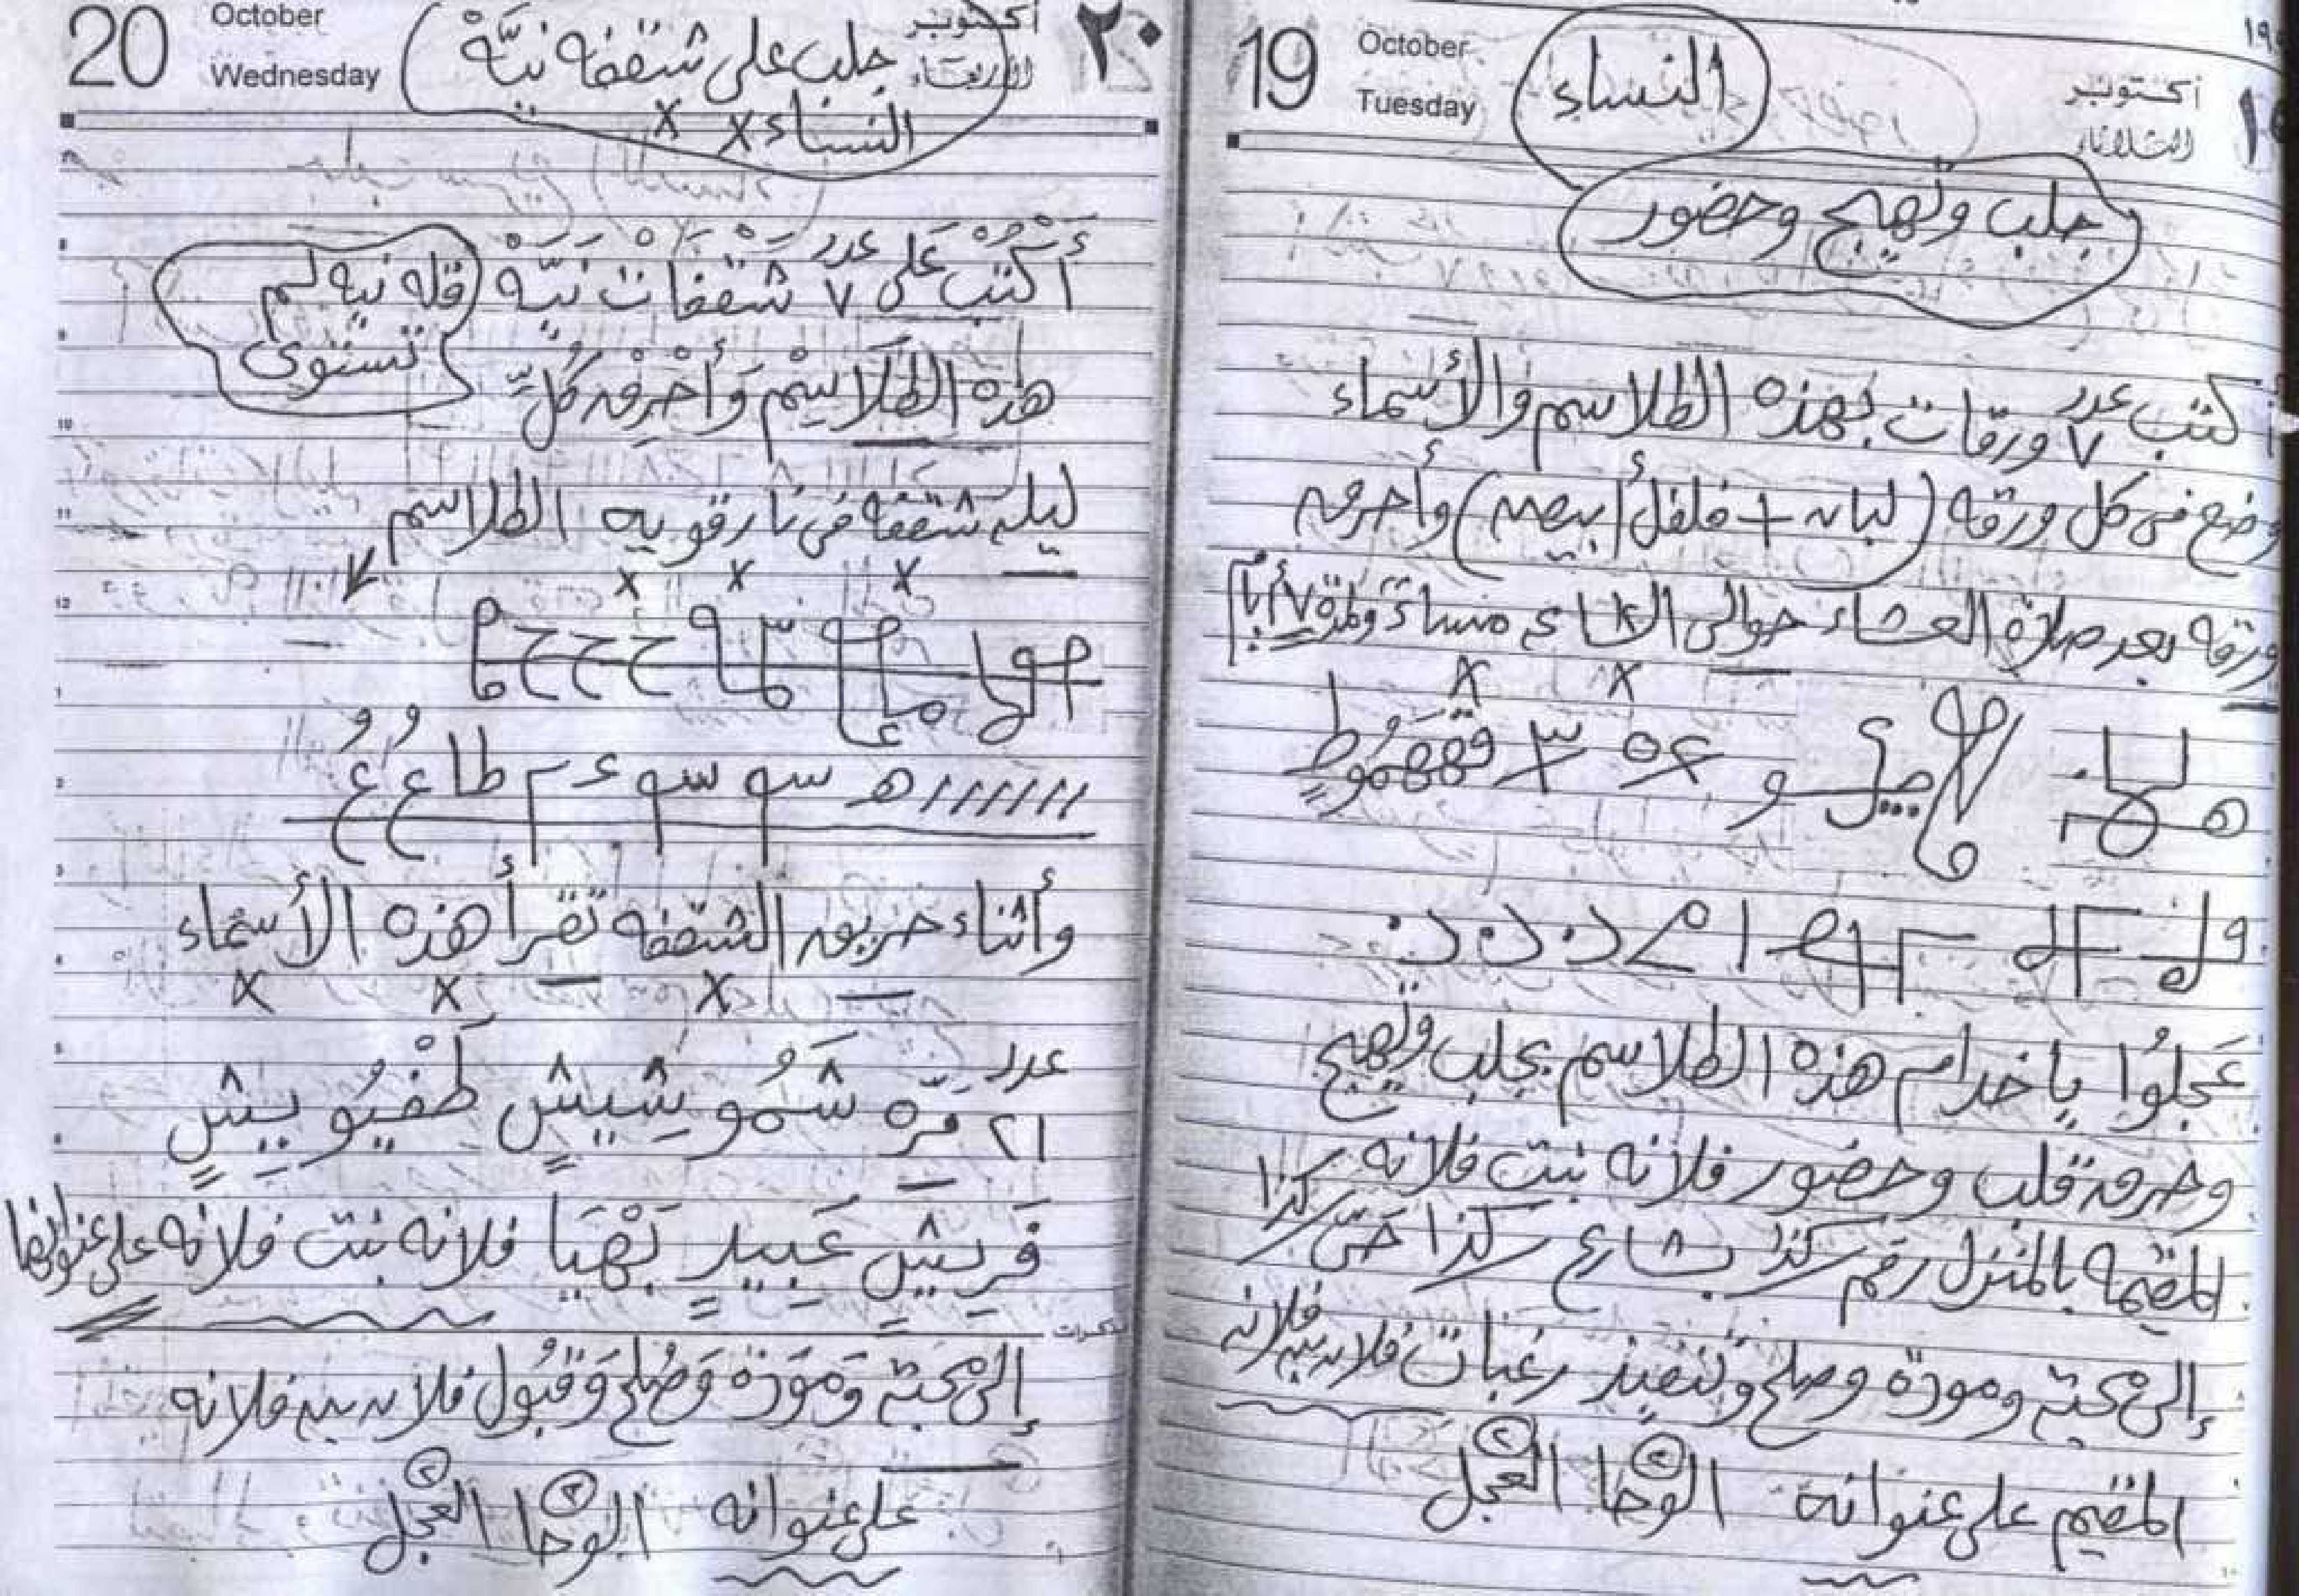 19
October
Tuesday
أكتوبر
الثلاثاء
النساء
جلب وتهيج وحضور
أكتب عدد ٧ ورقات بهذه الطلاسم والأسماء
وضع فى كل ورقه (لبان + فلفل أبيض) وأحرق
ورقه بعد صلاة العشاء حوالى الساعة مساءً ولمدة ٧ أيام
عجلوا يا خدام هذه الطلاسم بجلب وتهيج
وحرق قلب وحضور فلانه بنت فلانه
المقيمه بالمنزل رقم كذا بشارع كذا حى كذا
إلى محبة ومودة وصلح وتنفيذ رغبات فلان بن فلانه
المقيم على عنوانه الوحا ٢ العجل ٢
20
October
Wednesday
أكتوبر
الأربعاء
٢٠
جلب على شقفه نيَّه
النساء
أُكْتُبْ عَلى عدد ٧ شَقْفَات نيَّه (قله نيه لم
تستوى
هذه الطَلَاسِمْ وَأَحْرِق كُلّ
ليله شقفه فى نار قويه الطلاسم
وأثناء حريق الشقفه تقرأ هذه الأسماء
عدد
٢١ مرّه شَمُو شِيشٍ طَفْيُو يِيشٍ
فَرِيشٍ عَبِيدٍ بَهْيَا فلانه بنت فلانه على عنوانها
مذكرات
إلى محبةٍ وَمَوَدَة وَصُلح وَقَبُول فلان بن فلانه
على عنوانه الوحا ٢ العجل ٢